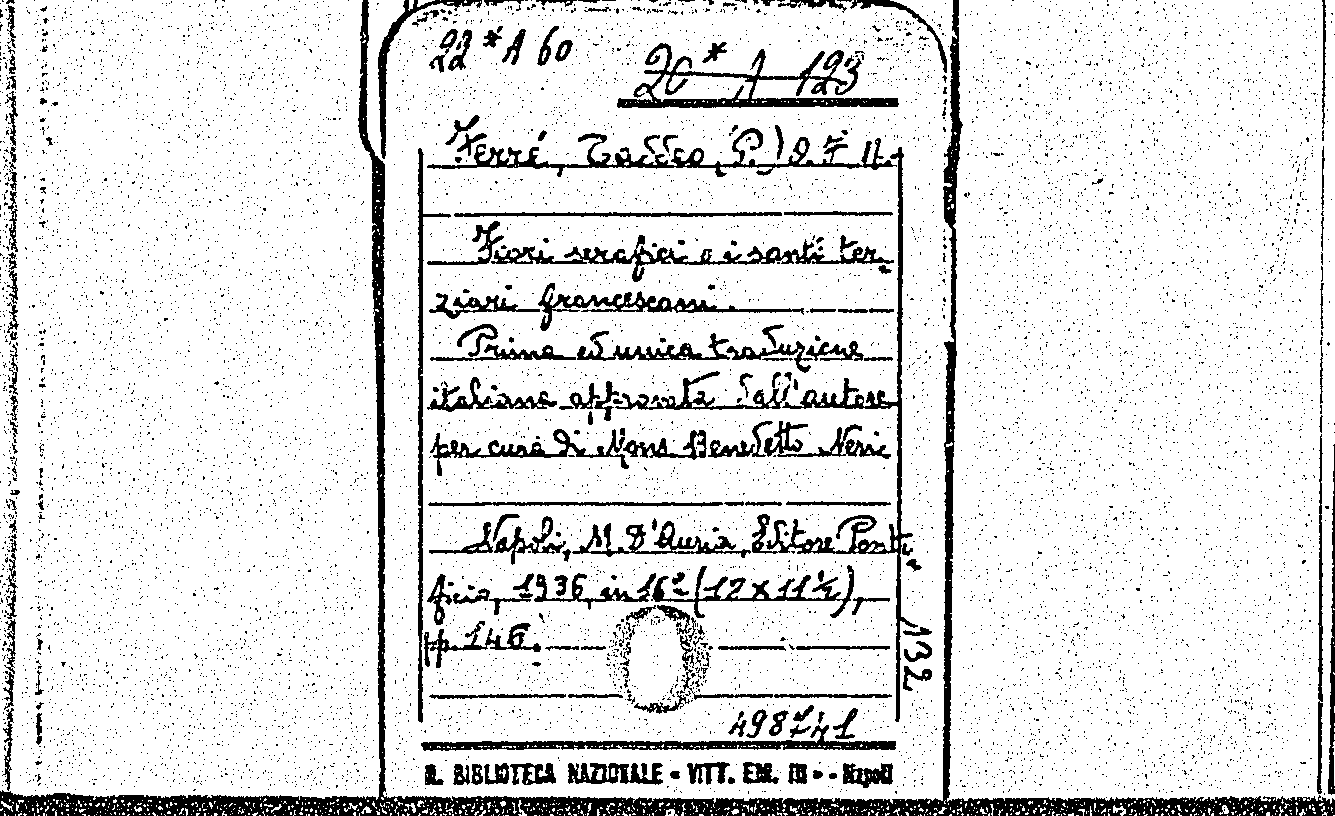 22 * A 60
20 * A 123
Ferré, Taddeo, (P.) O. F. M.-
Fiori serafici o i santi ter-
ziari francescani.
Prima ed unica traduzione
italiana approvata dall'autore
per cura di Mons. Benedetto Neri
Napoli, M. D'Auria, Editore Ponti-
ficio, 1936, in 16º (17 x 11 ½),
pp. 146.
132
498741
R. BIBLIOTECA NAZIONALE - VITT. EM. III - - Napoli